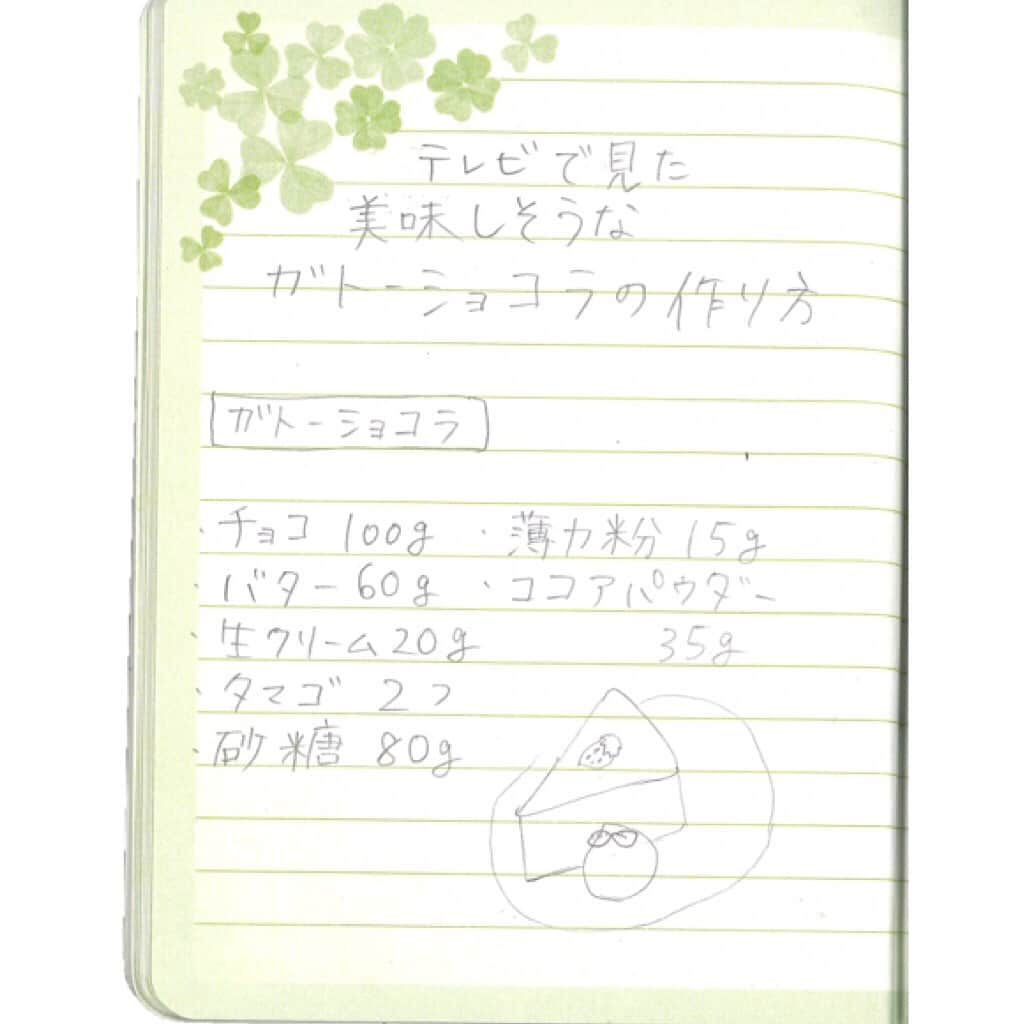 テレビで見た
美味しそうな
ガトーショコラの作り方
ガトーショコラ
・チョコ 100g ・薄力粉 15g
・バター 60g ・ココアパウダー
35g
・生クリーム 20g
・タマゴ 2つ
・砂糖 80g